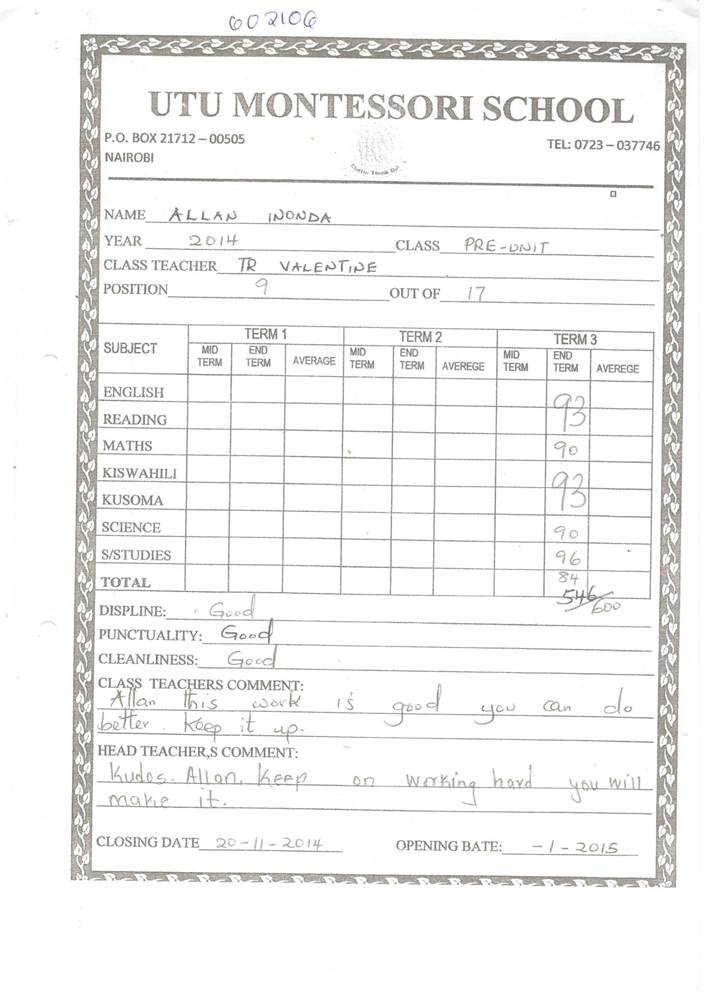 602106
UTU MONTESSORI SCHOOL
P.O. BOX 21712 – 00505 TEL: 0723 – 037746
NAIROBI
NAME ALLAN INONDA
YEAR 2014 CLASS PRE-UNIT
CLASS TEACHER TR VALENTINE
POSITION 9 OUT OF 17
SUBJECT TERM 1 TERM 2 TERM 3
MID TERM END TERM AVERAGE MID TERM END TERM AVEREGE MID TERM END TERM AVEREGE
ENGLISH
READING 93
MATHS 90
KISWAHILI
KUSOMA 93
SCIENCE 90
S/STUDIES 96
TOTAL 84
546/600
DISPLINE: Good
PUNCTUALITY: Good
CLEANLINESS: Good
CLASS TEACHERS COMMENT:
Allan this work is good you can do
better. Keep it up.
HEAD TEACHER,S COMMENT:
Kudos. Allan, keep on working hard you will
make it.
CLOSING DATE 20-11-2014 OPENING BATE: -1-2015